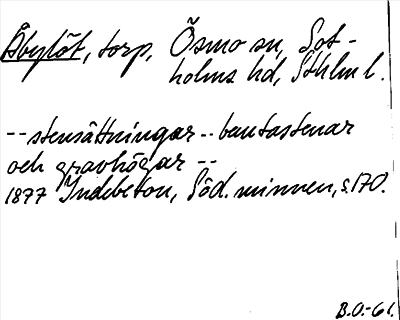 Åbylöt, torp, Ösmo sn, Sot-
holms hd, Sthlm l.
-- stensättningar -- bautastenar
och gravhögar --
1877 Indebetou, Söd. minnen, s. 170.
B.O.-61.